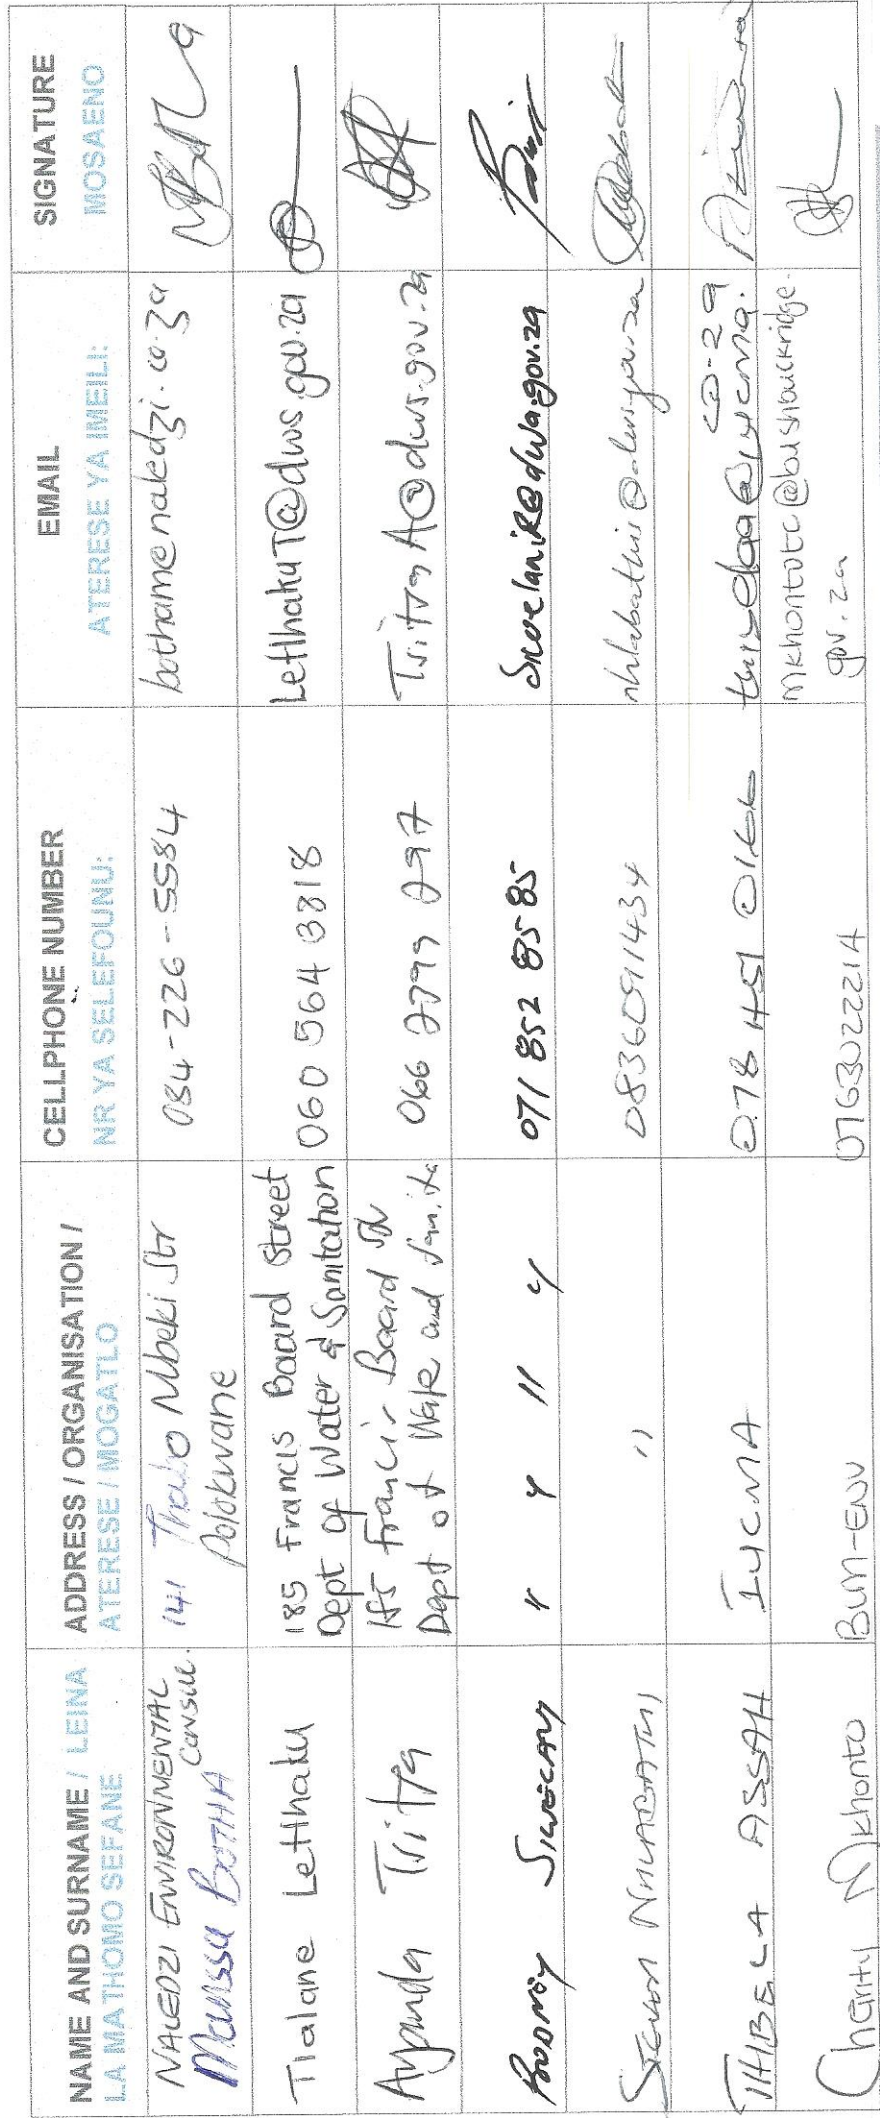 NAME AND SURNAME / LEINA
LA MATHOMO SEFANE
ADDRESS / ORGANISATION /
ATERESE / MOGATLO
CELLPHONE NUMBER
NR YA SELEFOUNU:
EMAIL
ATERESE YA IMEILI:
SIGNATURE
MOSAENO
NALEDZI ENVIRONMENTAL
Consul.
Marissa BOTHA
141 Thabo Mbeki Str
Polokwane
084-226-5584
botham@naledzi.co.za
Tlalane Letlhaku
185 Francis Baard Street
Dept of Water & Sanitation
060 564 3318
LetlhakuT@dws.gov.za
Ayanda Tsitsa
185 Francis Baard
Dept of Wate and Sanita
066 2799 297
TsitsaA@dws.gov.za
RODNEY
" " " "
071 852 8585
SiwelaniR@dwa.gov.za
NHLABATHI
"
0836091434
nhlabathis@dws.gov.za
THIBELA ASSAH
IUCMA
078 451 0166
co.za
@iucma.
Charity Mkhonto
BLM-ENV
0763022214
mkhontotc@bushbuckridge.
gov.za